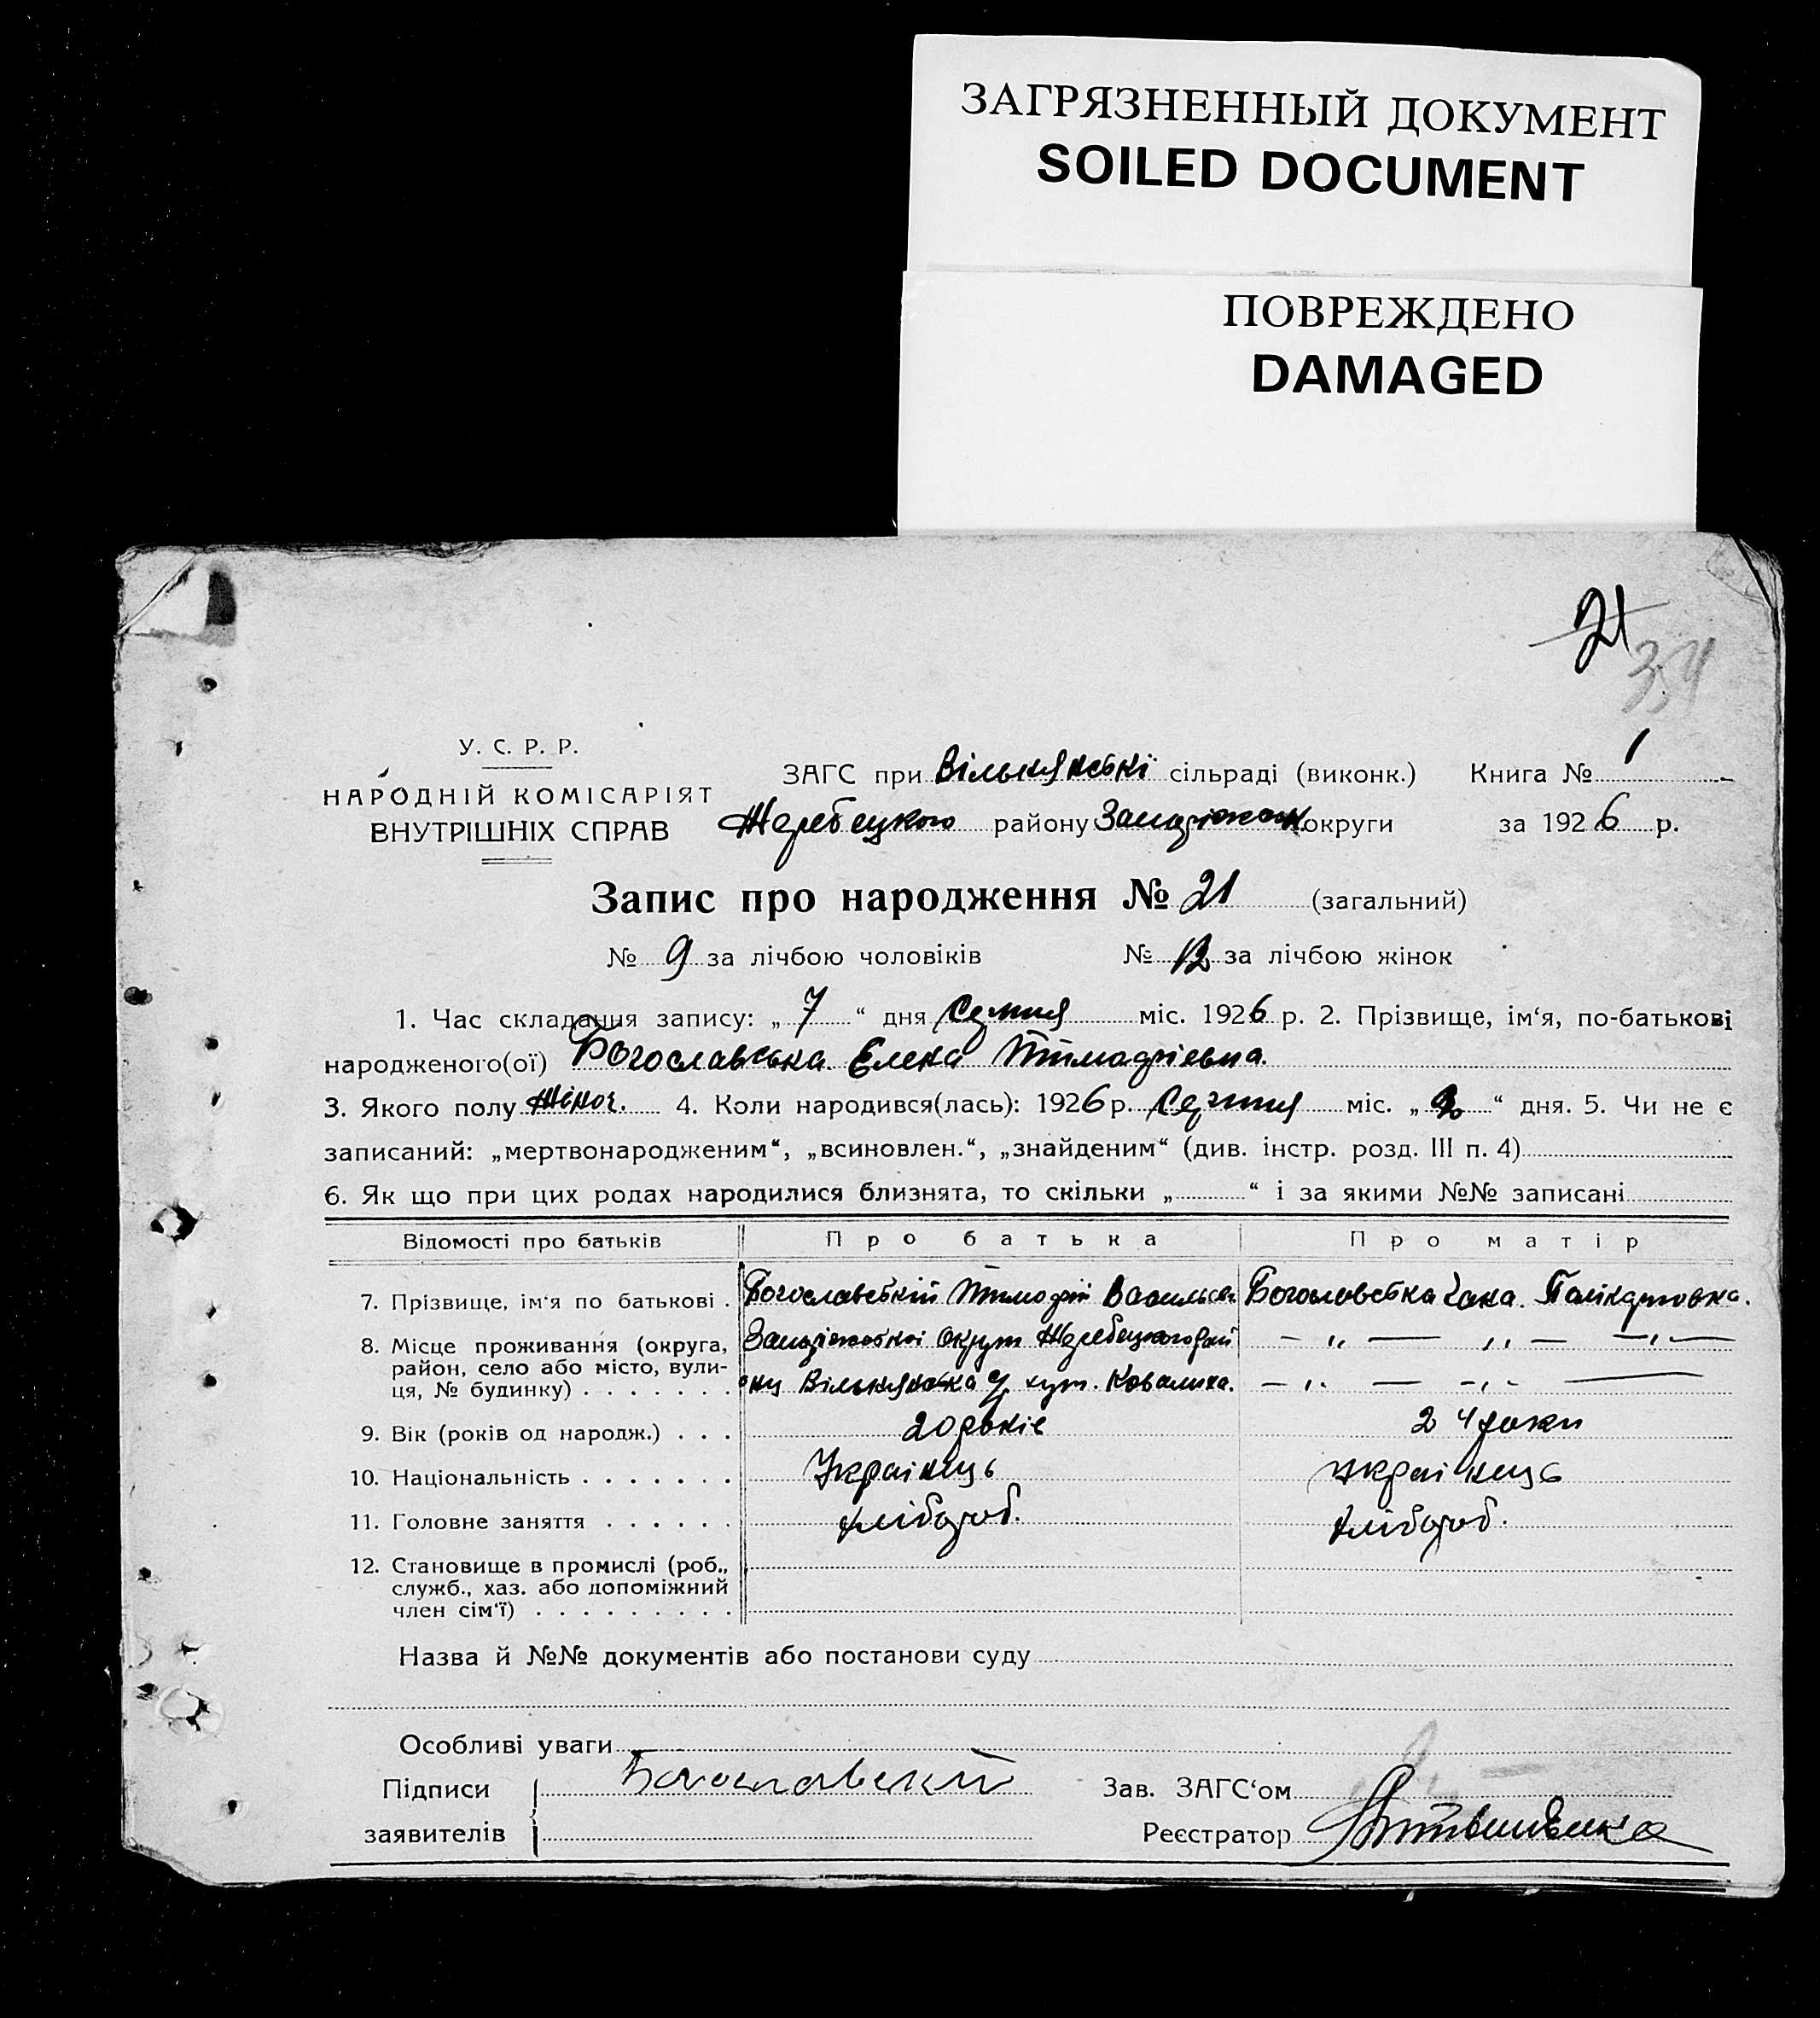 ЗАГРЯЗНЕННЫЙ ДОКУМЕНТ
SOILED DOCUMENT
ПОВРЕЖДЕНО
DAMAGED
21
34
У. С. Р. Р.
НАРОДНІЙ КОМІСАРІЯТ
ВНУТРІШНІХ СПРАВ
ЗАГС при Вількянські сільраді (виконк.) Книга № 1
Жеребецкого району Запоріжськ округи за 1926 р.
Запис про народження № 21 (загальний)
№ 9 за лічбою чоловіків № 12 за лічбою жінок
1. Час складання запису: „ 7 “ дня міс. 1926 р. 2. Прізвище, ім‘я, по-батькові
народженого(ої) Богославська Єлена Тимофіевна.
3. Якого полу жіноч. 4. Коли народився(лась): 1926 р. міс. „ “ дня. 5. Чи не є
записаний: „мертвонародженим“, „всиновлен.“, „знайденим“ (див. інстр. розд. III п. 4)
6. Як що при цих родах народилися близнята, то скільки „ “ і за якими №№ записані
Відомості про батьків Про батька Про матір
7. Прізвище, ім‘я по батькові . Богославській Тимофій Васильев Богословська Полікарповна.
8. Місце проживання (округа, Запоріжської округи Жеребецкого рай — „ — „ — „ —
район, село або місто, вули-
ця, № будинку) . . . . . . . ну Вількянська хут. Ковалиха. — „ — „ —
9. Вік (років од народж.) . . . 20 років 24 роки
10. Національність . . . . . . . Українець українець
11. Головне заняття . . . . . . хлібороб. хлібороб.
12. Становище в промислі (роб.,
служб., хаз. або допоміжний
член сім‘ї) . . . . . . . . .
Назва й №№ документів або постанови суду
Особливі уваги
Підписи Богославский Зав. ЗАГС‘ом
заявителів Реєстратор